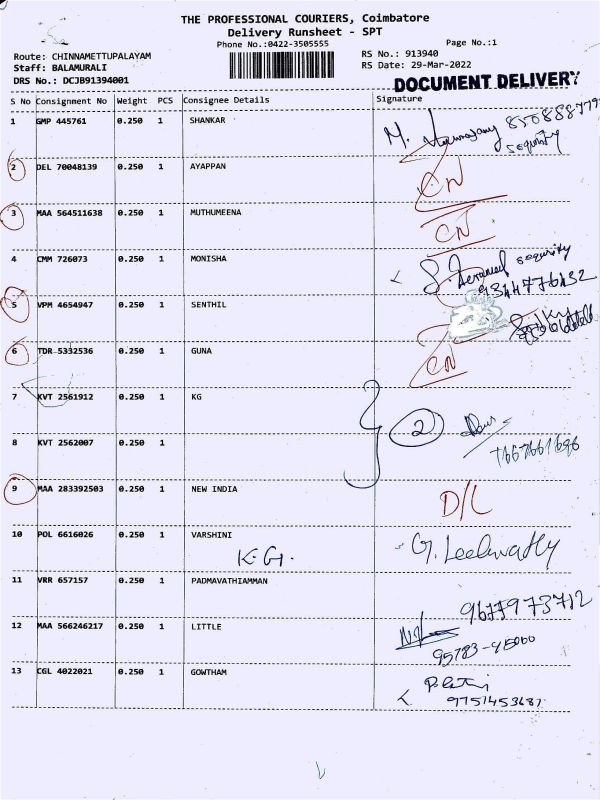 THE PROFESSIONAL COURIERS, Coimbatore
Delivery Runsheet - SPT
Phone No.:0422-3505555
Page No.:1
Route: CHINNAMETTUPALAYAM
Staff: BALAMURALI
DRS No.: DCJB91394001
RS No.: 913940
RS Date: 29-Mar-2022
DOCUMENT DELIVERY
S No Consignment No Weight PCS Consignee Details Signature
1 GMP 445761 0.250 1 SHANKAR
security
2 DEL 70048139 0.250 1 AYAPPAN CN
3 MAA 564511638 0.250 1 MUTHUMEENA CN
4 CMM 726073 0.250 1 MONISHA
security
5 VPM 4654947 0.250 1 SENTHIL
6 TDR 5332536 0.250 1 GUNA CN
7 KVT 2561912 0.250 1 KG
2
8 KVT 2562007 0.250 1
7667661696
9 MAA 283392503 0.250 1 NEW INDIA D/L
10 POL 6616026 0.250 1 VARSHINI
K.G.
11 VRR 657157 0.250 1 PADMAVATHIAMMAN
9677973712
12 MAA 566246217 0.250 1 LITTLE
95783-45000
13 CGL 4022021 0.250 1 GOWTHAM
9751453687